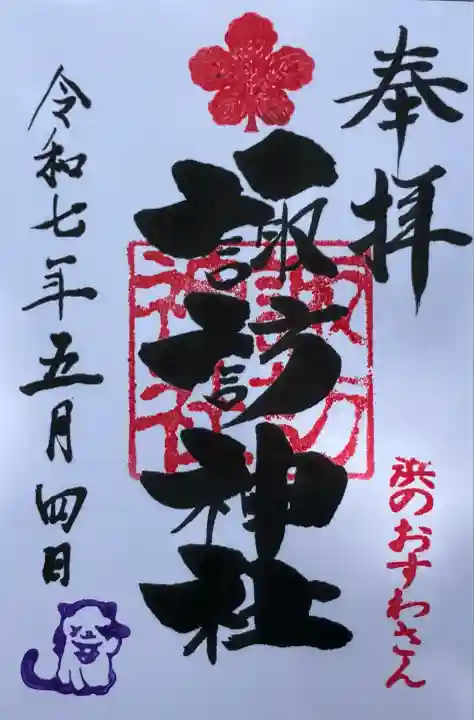 奉拝
諏訪神社
諏訪神社
浜のおすわさん
令和七年五月四日